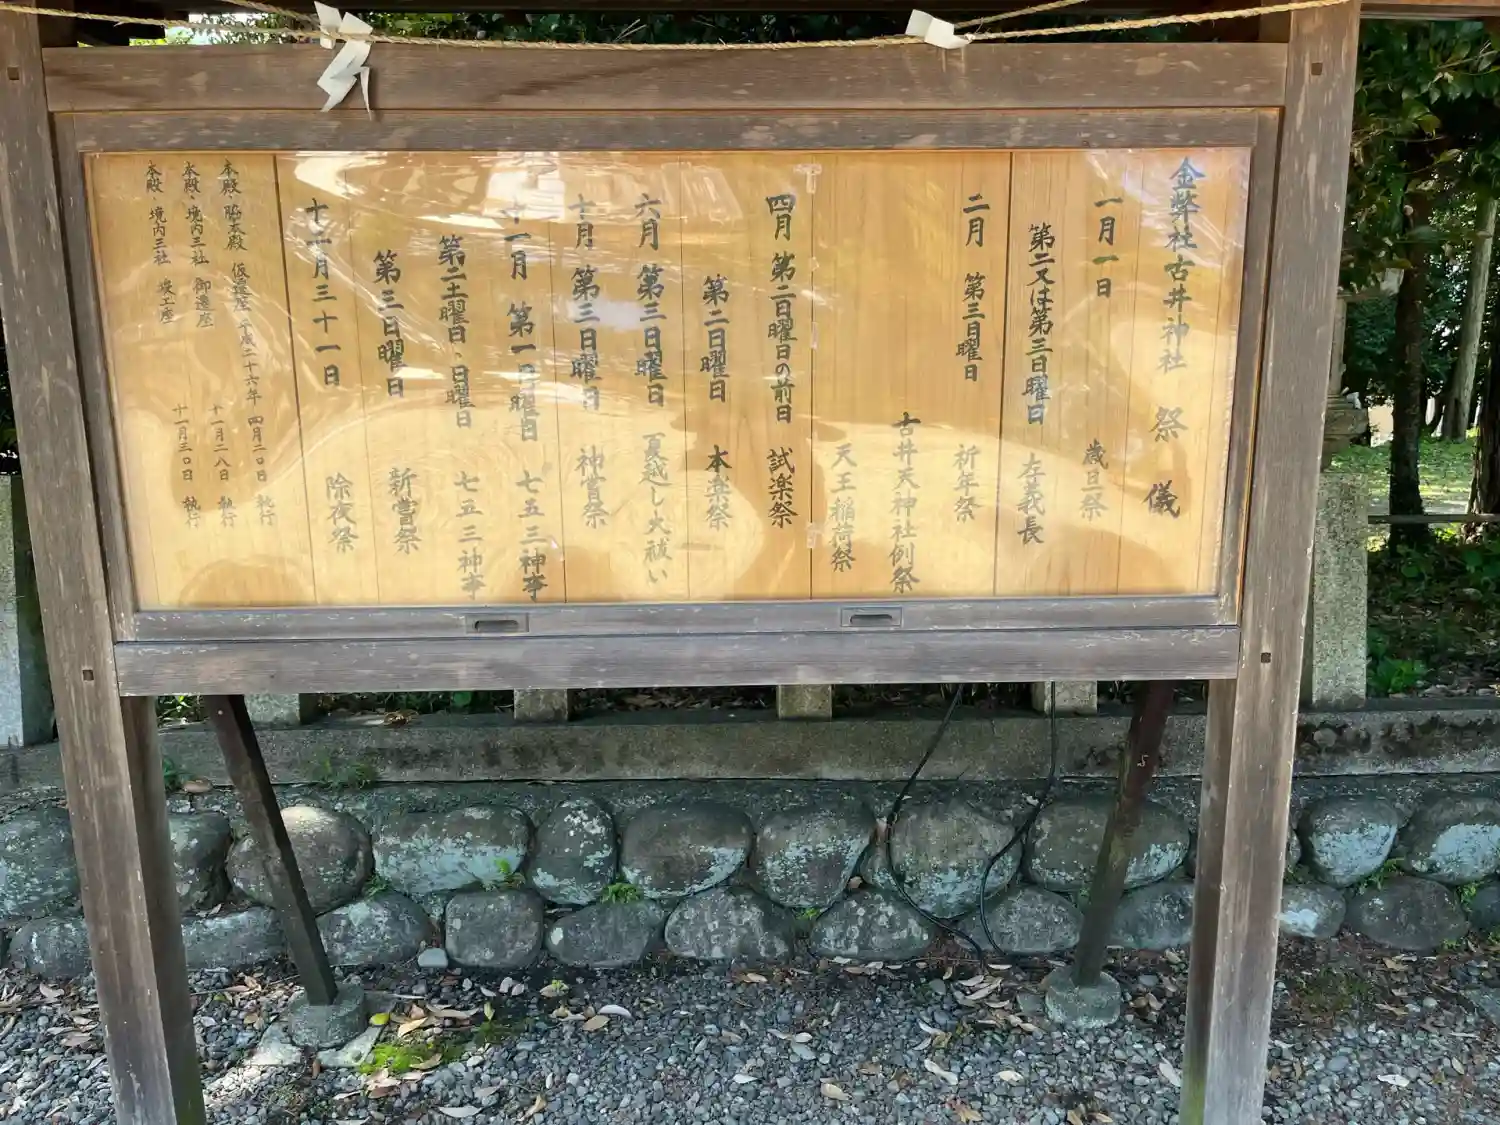 金幣社古井神社 祭儀
一月一日 歳旦祭
第二又は第三日曜日 左義長
二月 第三日曜日 祈年祭
古井天神社例祭
天王稲荷祭
四月 第二日曜日の前日 試楽祭
第二日曜日 本楽祭
六月 第三日曜日 夏越し大祓い
十月 第三日曜日 神嘗祭
十一月 第一日曜日 七五三神事
第二土曜日、日曜日 七五三神事
第三日曜日 新嘗祭
十二月三十一日 除夜祭
本殿、脇本殿 仮遷座 平成二十六年 四月二〇日 執行
本殿、境内三社 御遷座 十一月二八日 執行
本殿、境内三社 竣工座 十一月三〇日 執行